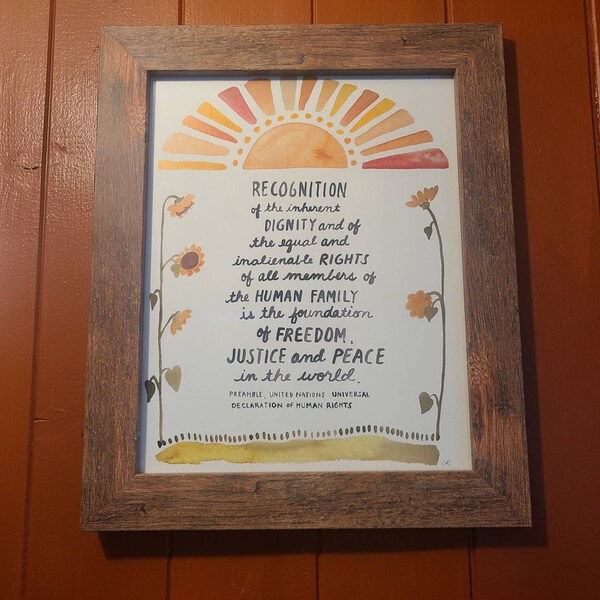 RECOGNITION
of the inherent
DIGNITY and of
the equal and
inalienable RIGHTS
of all members of
the HUMAN FAMILY
is the foundation
of FREEDOM,
JUSTICE and PEACE
in the world.
PREAMBLE, UNITED NATIONS UNIVERSAL
DECLARATION OF HUMAN RIGHTS